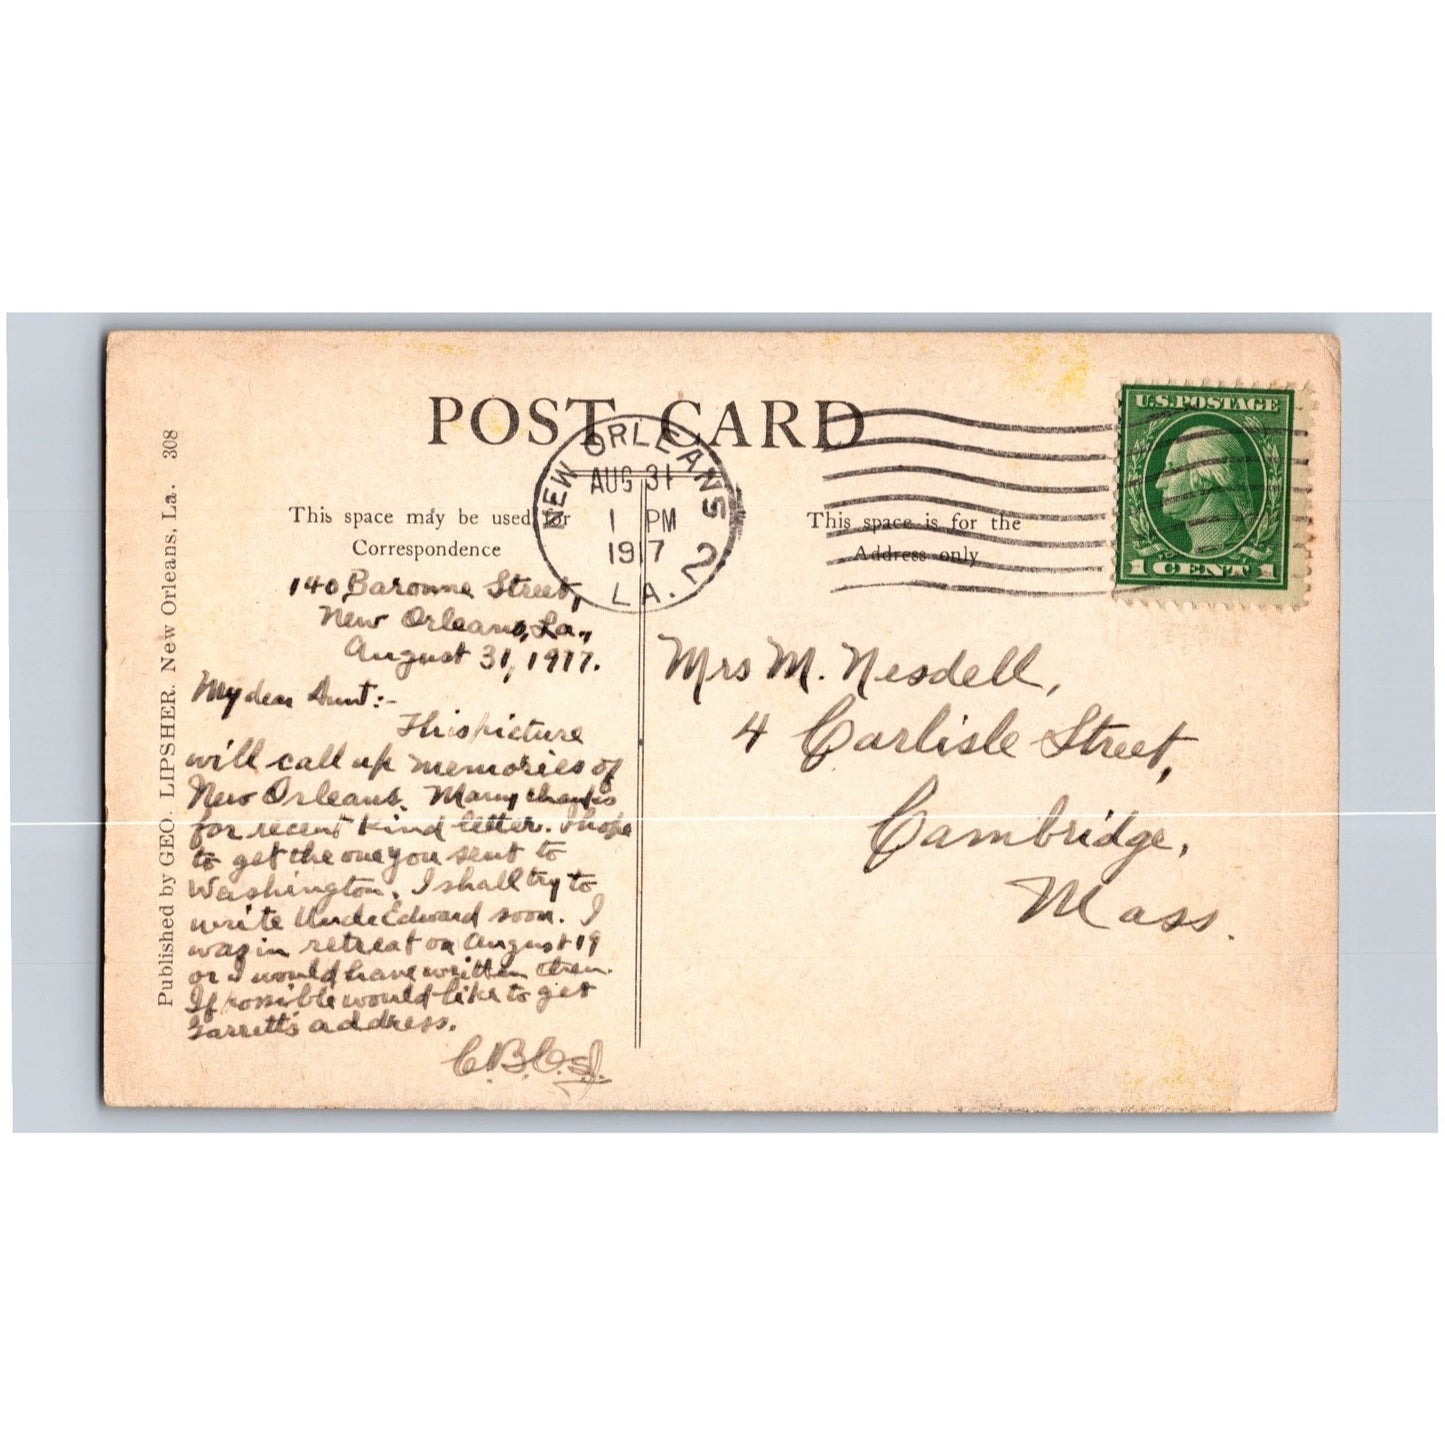 POST CARD
NEW ORLEANS 2
AUG 31
1 PM
1917
LA.
U.S. POSTAGE
1 CENT 1
This space may be used for
Correspondence
This space is for the
Address only
Published by GEO. LIPSHER. New Orleans, La. 308
140 Baronne Street,
New Orleans, La.,
August 31, 1917.
My dear Aunt:-
This picture
will call up memories of
New Orleans. Many thanks
for recent kind letter. I hope
to get the one you sent to
Washington. I shall try to
write Uncle Edward soon. I
was in retreat on August 19
or I would have written then.
If possible would like to get
Garrett's address.
C.B.C. S.J.
Mrs M. Nesdell,
4 Carlisle Street,
Cambridge,
Mass.